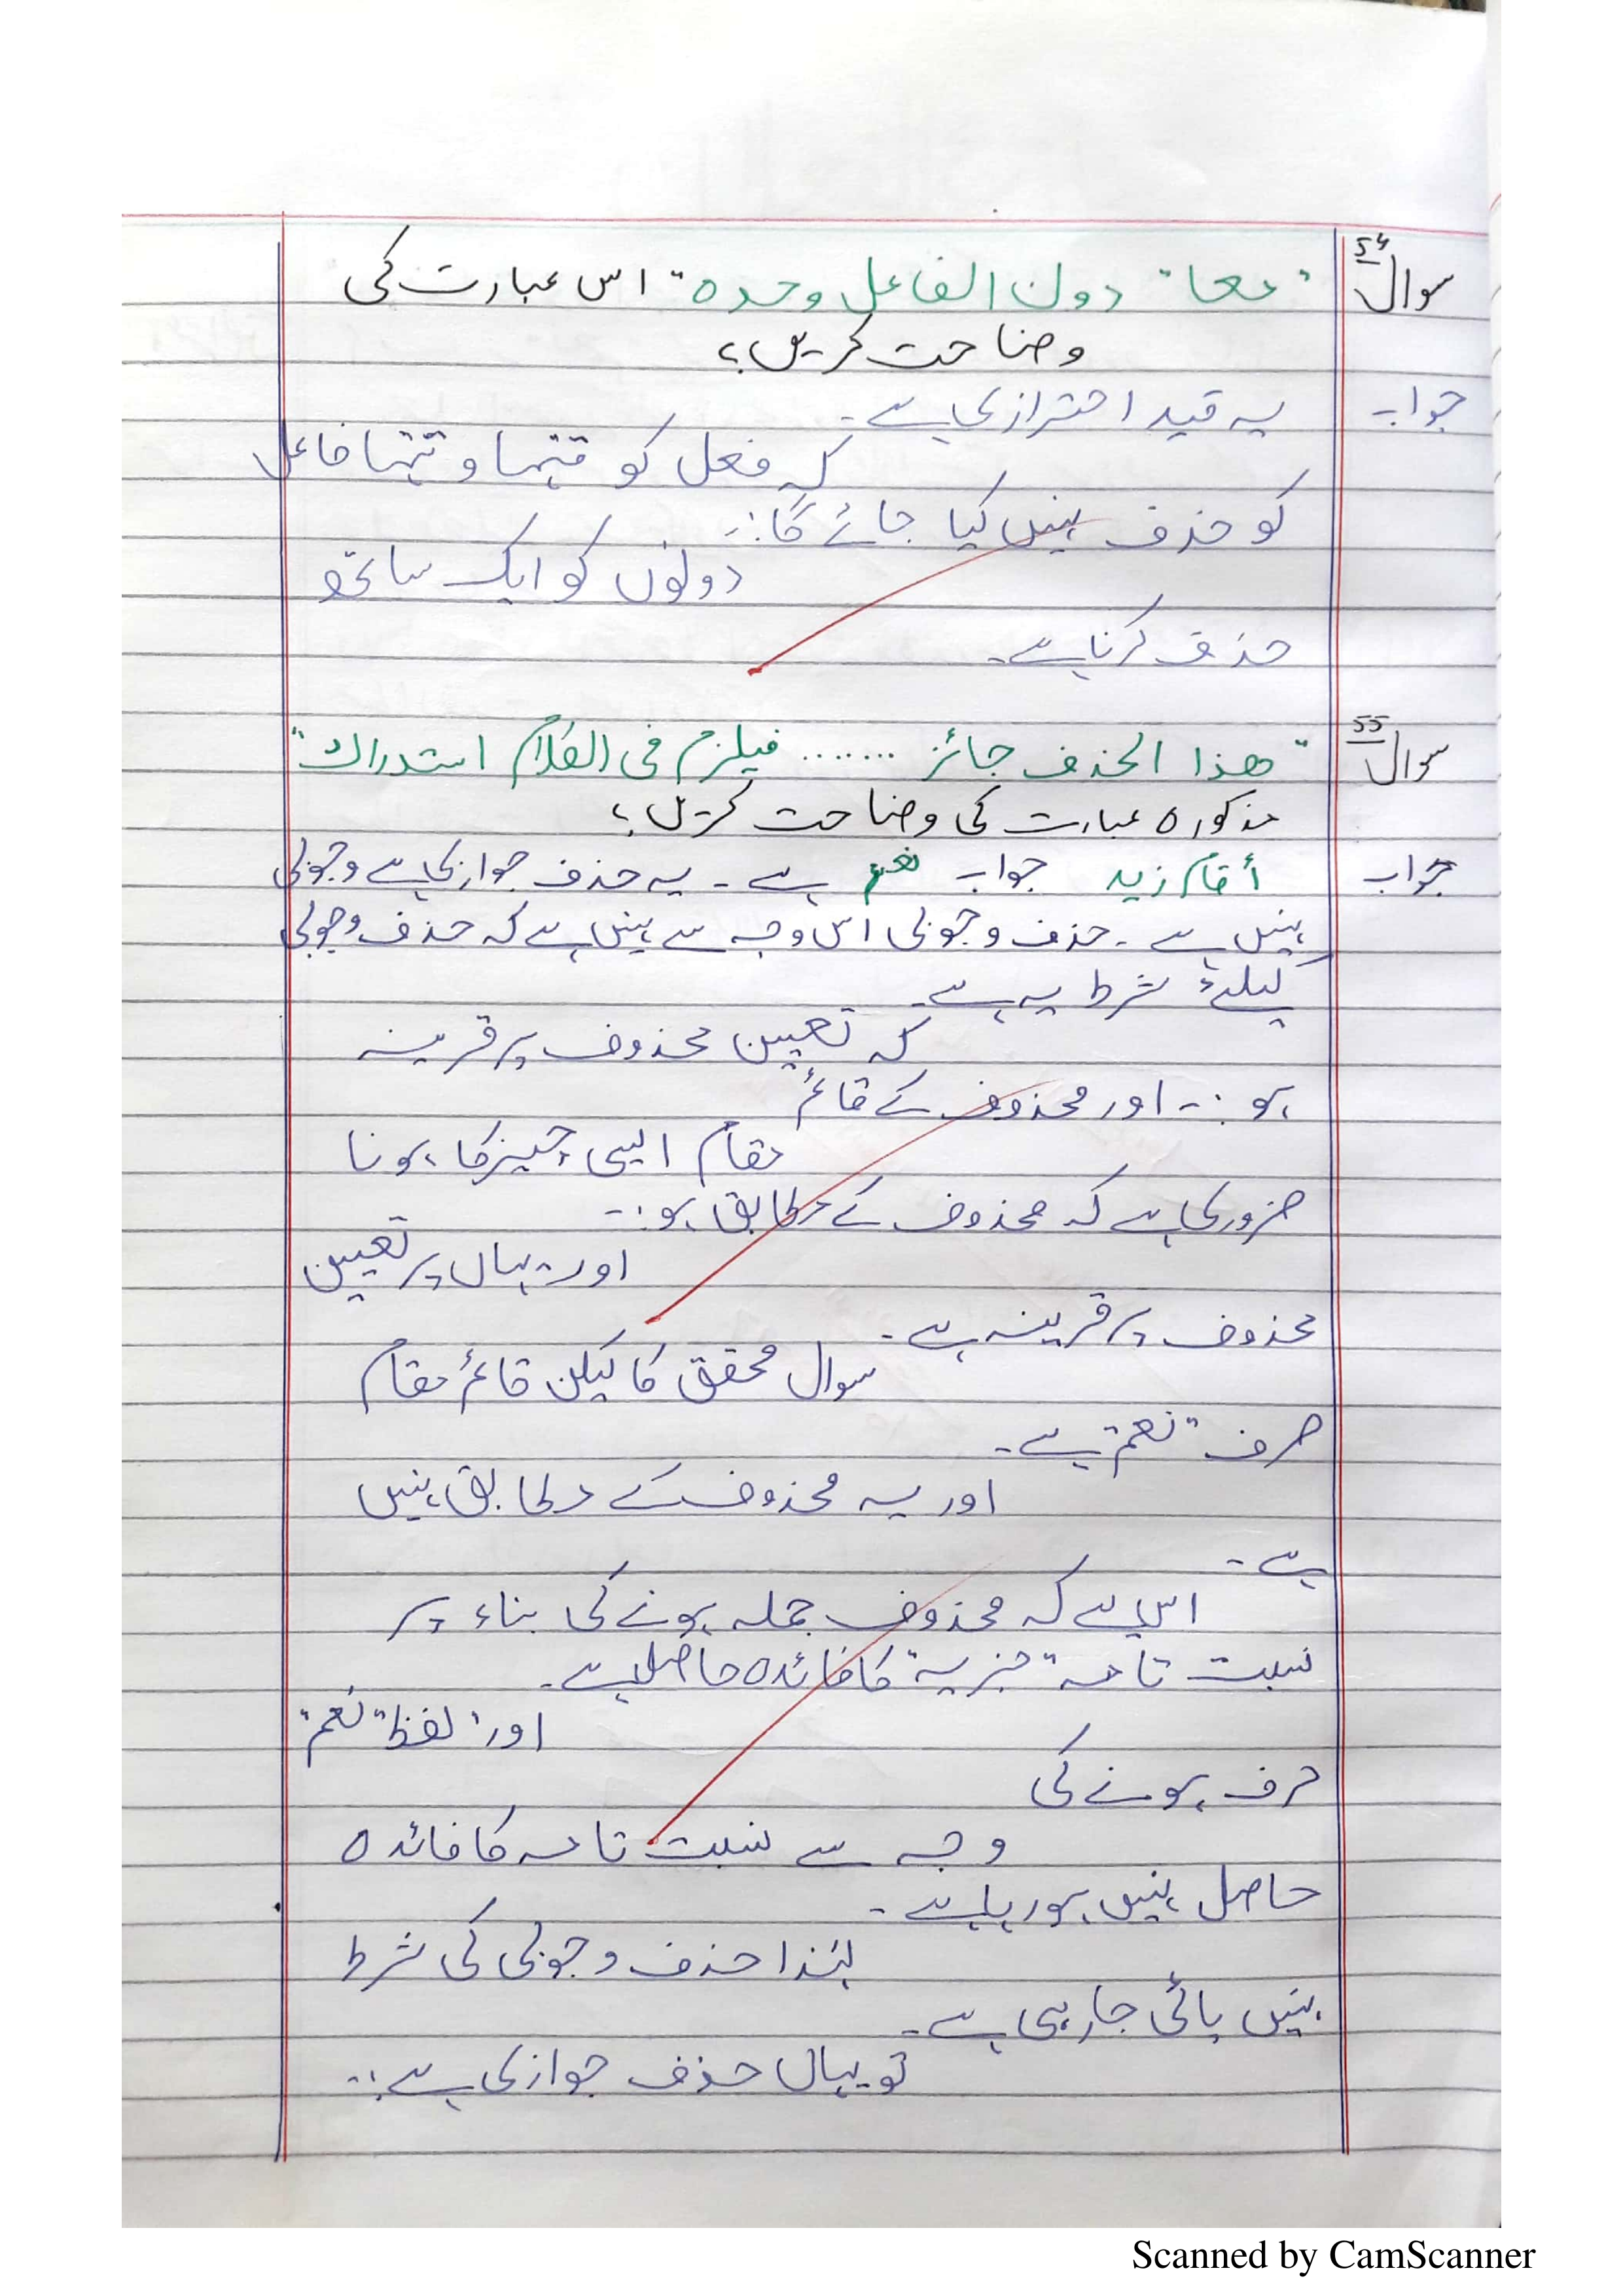 سوال 54 "معا" دون الفاعل وحده" اس عبارت کی
وضاحت کریں؟
جواب یہ قید احترازی ہے۔
کہ فعل کو تنہا و تنہا فاعل
کو حذف نہیں کیا جائے گا:۔
دونوں کو ایک ساتھ
حذف کرنا ہے۔
سوال 55 "ھذا الحذف جائز ....... فیلزم فی الکلام استدراک"
مذکورہ عبارت کی وضاحت کریں؟
جواب أقام زید جواب نعم ہے۔ یہ حذف جوازی ہے وجوبی
نہیں ہے۔ حذف وجوبی اس وجہ سے نہیں ہے کہ حذف وجوبی
کیلئے شرط یہ ہے۔
کہ تعیین محذوف پر قرینہ
ہو:۔ اور محذوف کے قائم
مقام ایسی چیز کا ہونا
ضروری ہے کہ محذوف کے مطابق ہو:۔
اور یہاں پر تعیین
محذوف پر قرینہ ہے۔
سوال محقق کا لیکن قائم مقام
صرف "نعم" ہے۔
اور یہ محذوف کے مطابق نہیں
ہے۔
اس لیے کہ محذوف جملہ ہونے کی بناء پر
نسبت تامہ "خبریہ" کا فائدہ حاصل ہے۔
اور" لفظ "نعم"
حرف ہونے کی
وجہ سے نسبت تامہ کا فائدہ
حاصل نہیں ہو رہا ہے۔
لہٰذا حذف وجوبی کی شرط
نہیں پائی جا رہی ہے۔
تو یہاں حذف جوازی ہے:۔
Scanned by CamScanner